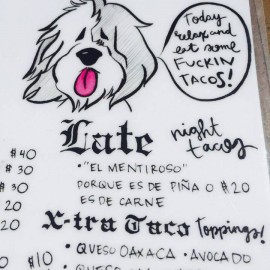 Today
relax and
eat some
FUCKIN
TACOS!
Late
night
tacos
$40
$30
$30
$20
20
• "EL MENTIROSO"
PORQUE ES DE PIÑA O $20
ES DE CARNE
X-tra Taco Toppings!
• QUESO OAXACA • AVOCADO
$10